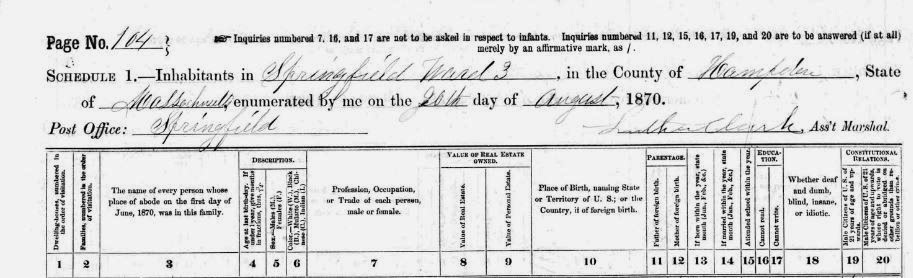 Page No. 104 ☞ Inquiries numbered 7, 16, and 17 are not to be asked in respect to infants. Inquiries numbered 11, 12, 15, 16, 17, 19, and 20 are to be answered (if at all)
merely by an affirmative mark, as /.
SCHEDULE 1.—Inhabitants in Springfield Ward 3, in the County of Hampden, State
of Massachusetts enumerated by me on the 26th day of August, 1870.
Post Office: Springfield
Luther Clark, Ass't Marshal.
Dwelling-houses, numbered in the order of visitation.
Families, numbered in the order of visitation.
The name of every person whose
place of abode on the first day of
June, 1870, was in this family.
DESCRIPTION.
Age at last birth-day. If under 1 year, give months in fractions, thus, 3/12
Sex.—Males (M.), Females (F.)
Color.—White (W.), Black (B.), Mulatto (M.), Chinese (C.), Indian (I.)
Profession, Occupation,
or Trade of each person,
male or female.
VALUE OF REAL ESTATE
OWNED.
Value of Real Estate.
Value of Personal Estate.
Place of Birth, naming State
or Territory of U. S.; or the
Country, if of foreign birth.
PARENTAGE.
Father of foreign birth.
Mother of foreign birth.
If born within the year, state month (Jan., Feb., &c.)
If married within the year, state month (Jan., Feb., &c.)
Attended school within the year.
EDUCA-
TION.
Cannot read.
Cannot write.
Whether deaf
and dumb,
blind, insane,
or idiotic.
CONSTITUTIONAL
RELATIONS.
Male Citizens of U. S. of 21 years of age and upwards.
Male Citizens of U. S. of 21 years of age and upwards, where right to vote is denied or abridged on other grounds than rebellion or other crime.
1 2 3 4 5 6 7 8 9 10 11 12 13 14 15 16 17 18 19 20